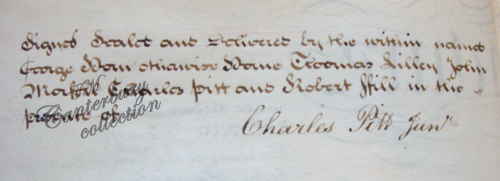 Signed Sealed and Delivered by the within named
George Naw otherwise Nawne Thomas Lilley John
Market Charles Pitt and Robert Hill in the
presence of
Charles Pitt Junr
Canterbury
collection